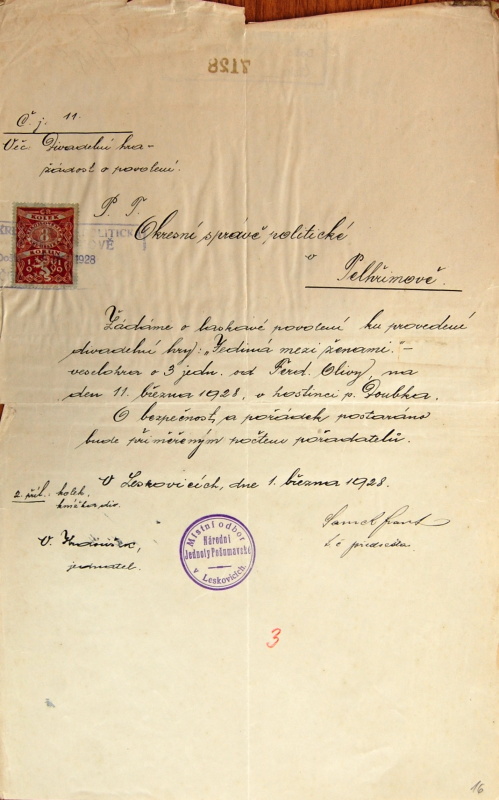 7128
Č. j. 11.
Věc: Divadelní hra-
žádost o povolení.
P. T.
Okresní správě politické
v
Pelhřimově.
KOLEK
KORUN
1928
Žádáme o laskavé povolení ku provedení
divadelní hry: „Jediná mezi ženami."-
veselohra o 3 jedn. od Ferd. Olivy, na
den 11. března 1928, v hostinci p. Doubka.
O bezpečnost a pořádek postaráno
bude přiměřeným počtem pořadatelů.
V Leskovicích, dne 1. března 1928.
2. příl. kolek,
knížka div.
V.
jednatel.
Místní odbor
Národní
Jednoty Pošumavské
v Leskovicích.
t. č. předseda
3
16